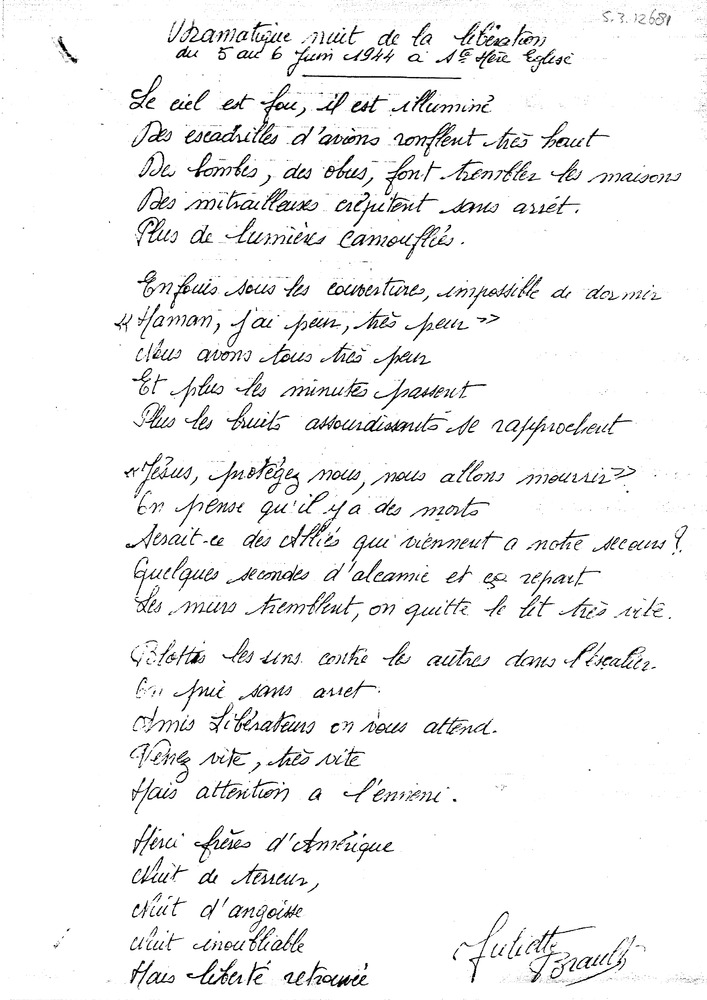 S.3.12681
Dramatique nuit de la libération
du 5 au 6 Juin 1944 à Ste Mère Eglise
Le ciel est fou, il est illuminé
Des escadrilles d'avions ronflent très haut
Des bombes, des obus, font trembler les maisons
Des mitrailleuses crépitent sans arrêt.
Plus de lumières camouflées.
Enfouis sous les couvertures, impossible de dormir
« Maman, j'ai peur, très peur »
Nous avons tous très peur
Et plus les minutes passent
Plus les bruits assourdissants se rapprochent
« Jésus, protégez nous, nous allons mourrir »
On pense qu'il y a des morts
Serait-ce des Alliés qui viennent a notre secours ?
Quelques secondes d'alcamie et ça repart
Les murs tremblent, on quitte le lit très vite.
Blottis les uns contre les autres dans l'escalier.
On prie sans arret
Amis Libérateurs on vous attend.
Venez vite, très vite
Mais attention a l'ennemi.
Merci frères d'Amérique
Nuit de terreur,
Nuit d'angoisse
Nuit inoubliable
Mais liberté retrouvée
Juliette Brault